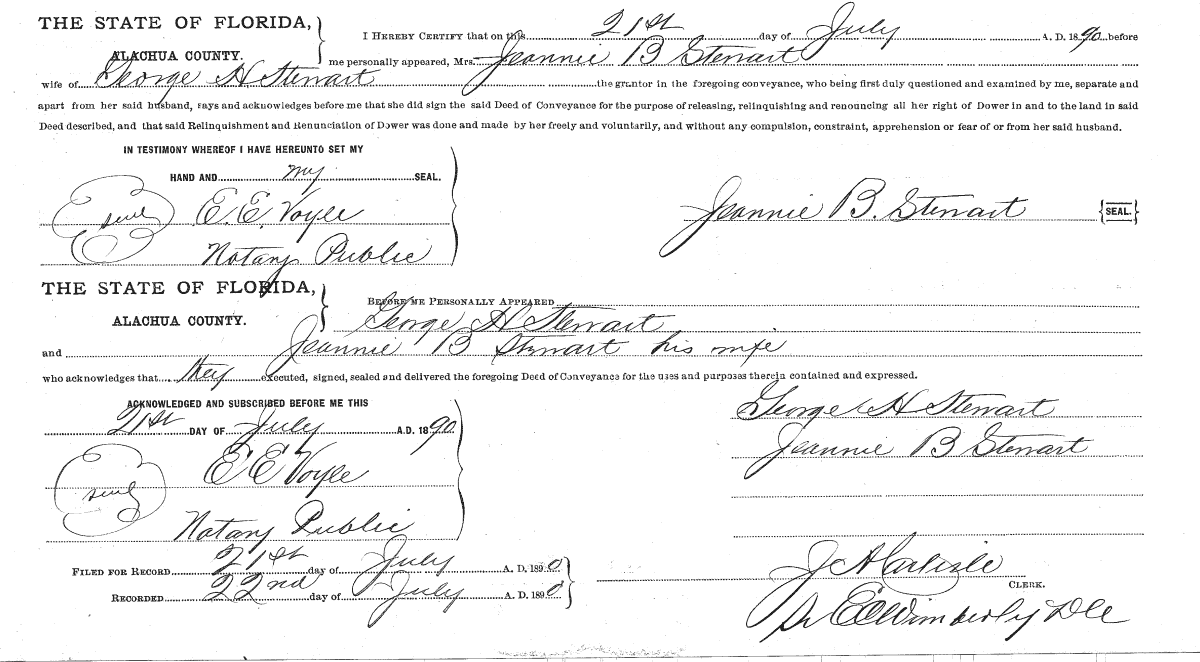 THE STATE OF FLORIDA,
ALACHUA COUNTY.
I HEREBY CERTIFY that on this 21st day of July A. D. 1890 before
me personally appeared, Mrs. Jeannie B Stewart
wife of George H Stewart the grantor in the foregoing conveyance, who being first duly questioned and examined by me, separate and
apart from her said husband, says and acknowledges before me that she did sign the said Deed of Conveyance for the purpose of releasing, relinquishing and renouncing all her right of Dower in and to the land in said
Deed described, and that said Relinquishment and Renunciation of Dower was done and made by her freely and voluntarily, and without any compulsion, constraint, apprehension or fear of or from her said husband.
IN TESTIMONY WHEREOF I HAVE HEREUNTO SET MY
HAND AND my SEAL.
seal E. E. Voyle
Notary Public
Jeannie B. Stewart {SEAL.}
THE STATE OF FLORIDA,
ALACHUA COUNTY.
BEFORE ME PERSONALLY APPEARED
George H Stewart
and Jeannie B Stewart his wife
who acknowledges that they executed, signed, sealed and delivered the foregoing Deed of Conveyance for the uses and purposes therein contained and expressed.
ACKNOWLEDGED AND SUBSCRIBED BEFORE ME THIS
21st DAY OF July A.D. 1890
seal E E Voyle
Notary Public
George H Stewart
Jeannie B Stewart
FILED FOR RECORD 21st day of July A. D. 1890
RECORDED 22nd day of July A. D. 1890
J A Carlisle
CLERK.
Wimberly DC